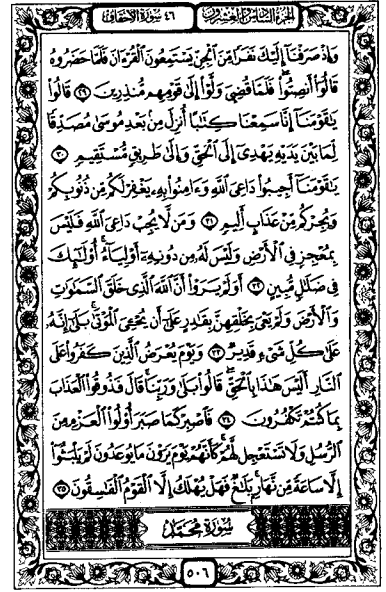 الجزء السادس والعشرون ٤٦ سورة الأحقاف
وَإِذْ صَرَفْنَا إِلَيْكَ نَفَرًا مِنَ الْجِنِّ يَسْتَمِعُونَ الْقُرْءَانَ فَلَمَّا حَضَرُوهُ
قَالُوا أَنصِتُوا فَلَمَّا قُضِيَ وَلَّوْا إِلَى قَوْمِهِم مُنذِرِينَ ٢٩ قَالُوا
يَاقَوْمَنَا إِنَّا سَمِعْنَا كِتَابًا أُنزِلَ مِن بَعْدِ مُوسَى مُصَدِّقًا
لِمَا بَيْنَ يَدَيْهِ يَهْدِي إِلَى الْحَقِّ وَإِلَى طَرِيقٍ مُسْتَقِيمٍ ٣٠
يَاقَوْمَنَا أَجِيبُوا دَاعِيَ اللَّهِ وَءَامِنُوا بِهِ يَغْفِرْ لَكُم مِن ذُنُوبِكُمْ
وَيُجِرْكُم مِنْ عَذَابٍ أَلِيمٍ ٣١ وَمَن لَا يُجِبْ دَاعِيَ اللَّهِ فَلَيْسَ
بِمُعْجِزٍ فِي الْأَرْضِ وَلَيْسَ لَهُ مِن دُونِهِ أَوْلِيَاءُ أُولَئِكَ
فِي ضَلَالٍ مُبِينٍ ٣٢ أَوَلَمْ يَرَوْا أَنَّ اللَّهَ الَّذِي خَلَقَ السَّمَاوَاتِ
وَالْأَرْضَ وَلَمْ يَعْيَ بِخَلْقِهِنَّ بِقَادِرٍ عَلَى أَن يُحْيِيَ الْمَوْتَى بَلَى إِنَّهُ
عَلَى كُلِّ شَيْءٍ قَدِيرٌ ٣٣ وَيَوْمَ يُعْرَضُ الَّذِينَ كَفَرُوا عَلَى
النَّارِ أَلَيْسَ هَذَا بِالْحَقِّ قَالُوا بَلَى وَرَبِّنَا قَالَ فَذُوقُوا الْعَذَابَ
بِمَا كُنتُمْ تَكْفُرُونَ ٣٤ فَاصْبِرْ كَمَا صَبَرَ أُولُوا الْعَزْمِ مِنَ
الرُّسُلِ وَلَا تَسْتَعْجِل لَهُمْ كَأَنَّهُمْ يَوْمَ يَرَوْنَ مَا يُوعَدُونَ لَمْ يَلْبَثُوا
إِلَّا سَاعَةً مِن نَهَارٍ بَلَاغٌ فَهَلْ يُهْلَكُ إِلَّا الْقَوْمُ الْفَاسِقُونَ ٣٥
سُورَةُ مُحَمَّدٍ
٥٠٦